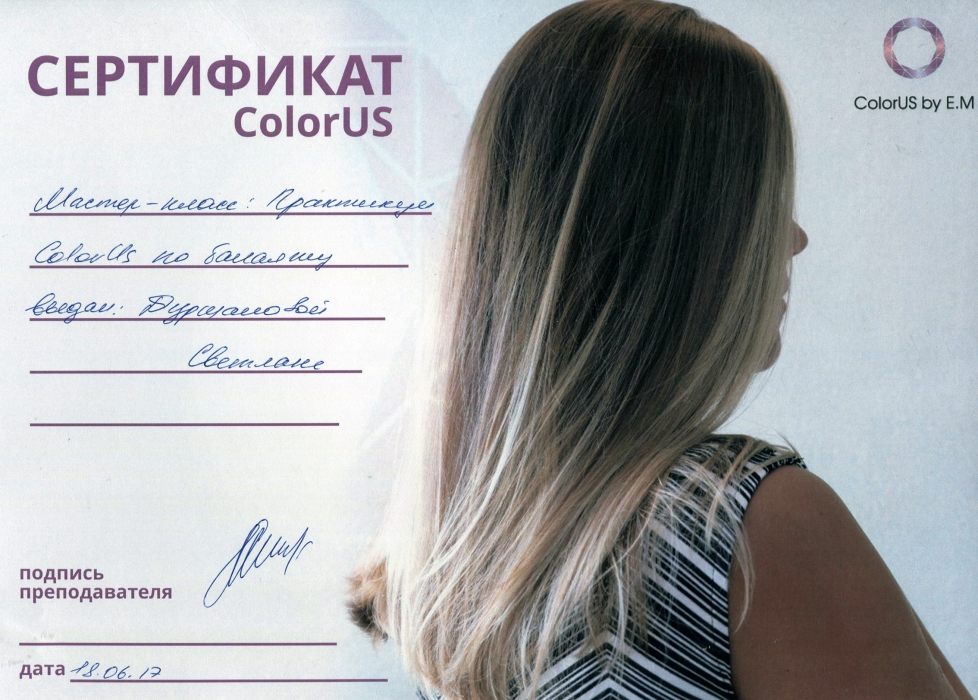 СЕРТИФИКАТ
ColorUS
ColorUS by E.M
Мастер-класс: Практикум
ColorUs по балаяжу
выдан:
Светлане
подпись
преподавателя
дата 18.06.17